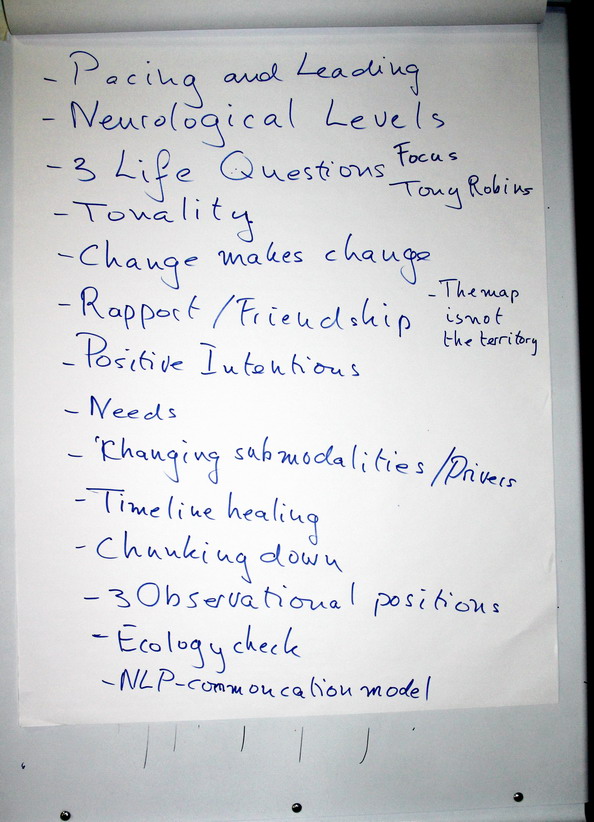 - Pacing and Leading
- Neurological Levels
- 3 Life Questions Focus
Tony Robins
- Tonality
- Change makes change
- Rapport / Friendship
- The map
is not
the territory
- Positive Intentions
- Needs
- Changing submodalities / Drivers
- Timeline healing
- Chunking down
- 3 Observational positions
- Ecology check
- NLP-commoncation model